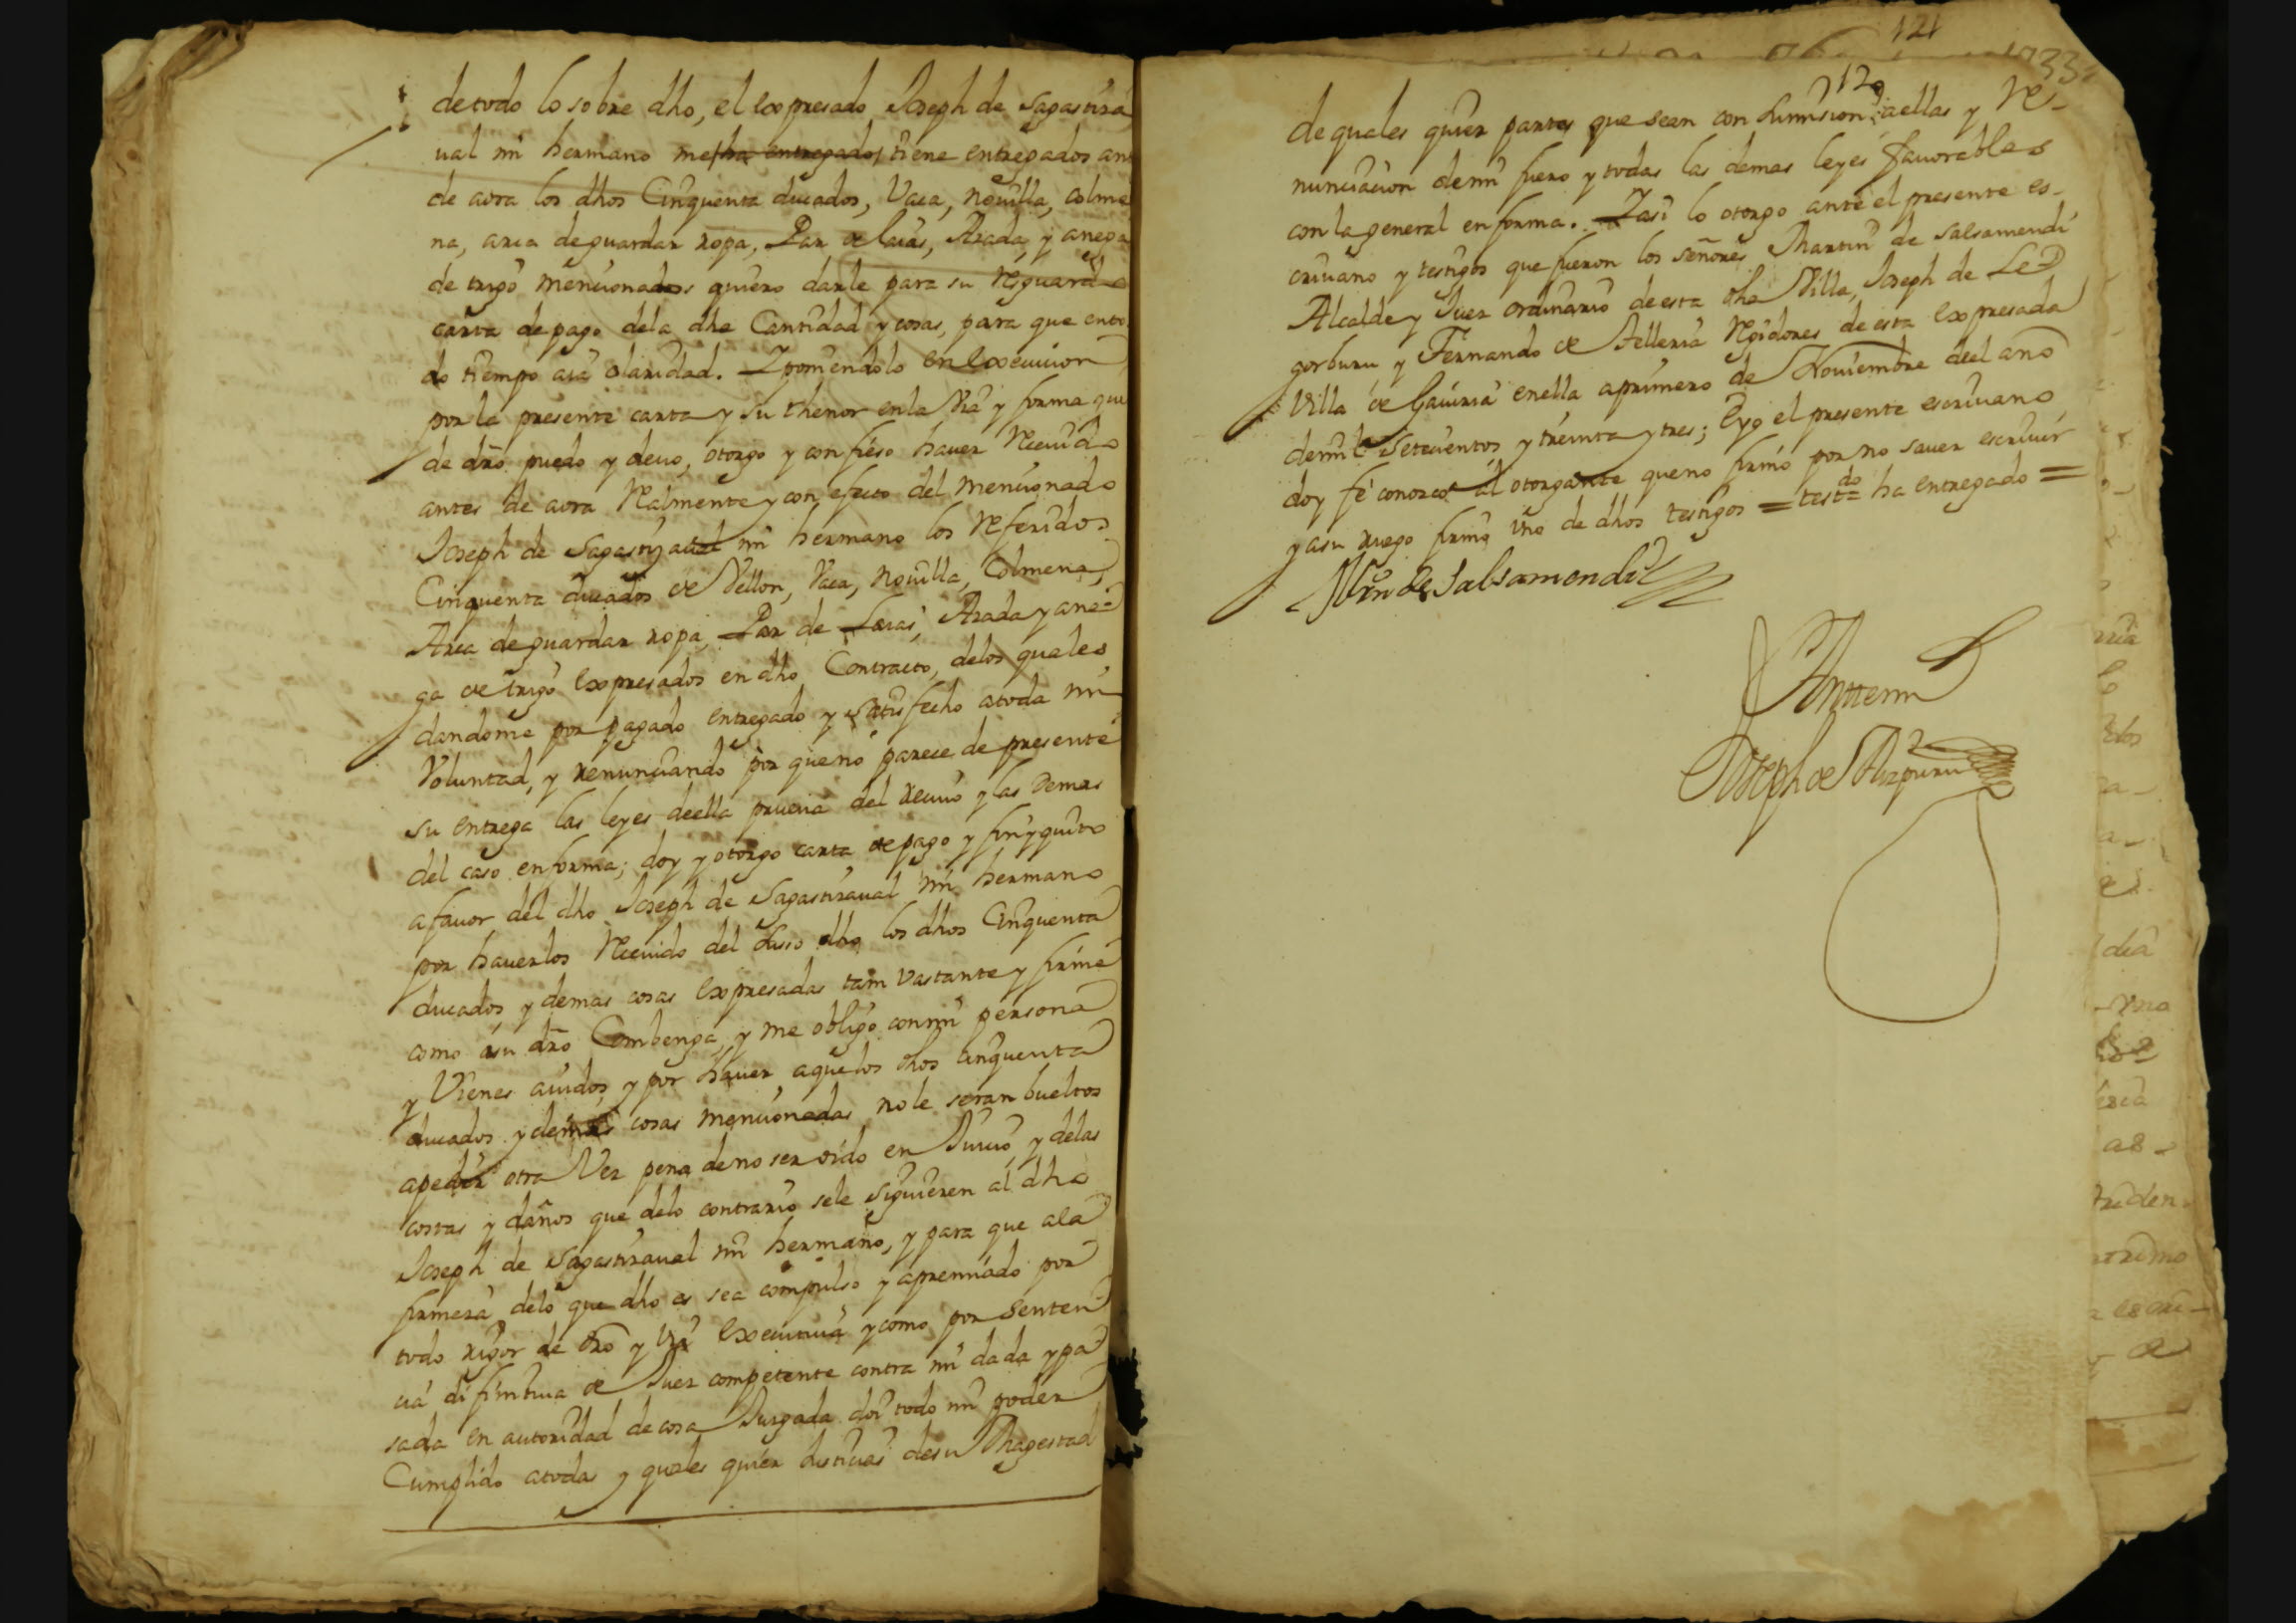 de todo lo sobre dho, el expresado Joseph de Sagastiza
ual mi hermano me ha entregado tiene entregados an
de aora los dhos Cinquenta ducados, Vaca, nouilla, colme
na, arca de guardar ropa, Par de laias, Azada, y anega
de trigo mencionados quiero darle para su resguardo
carta de pago dela dha Cantidad y cosas, para que ento
do tiempo aia claridad. Y poniendolo en execucion
por la presente carta y su thenor en la via y forma que
de dro puedo y deuo, otorgo y confieso hauer Receuido
antes de aora Realmente y con efecto del mencionado
Joseph de Sagastizaual mi hermano los referidos
Cinquenta ducados de Vellon, Vaca, nouilla, Colmena,
Arca de guardar ropa, Par de Laias, Azada y ane-
ga de trigo expresados en dho Contracto, delos quales
dandome por pagado entregado y satisfecho atoda mi
Voluntad, y renunciando por que no parece de presente
su entrega las leyes deella prueua del reciuo y las demas
del caso en forma; doy y otorgo carta de pago y finyquito
a fauor del dho Joseph de Sagastizaual mi hermano
por hauerlos Receuido del suso dho los dhos Cinquenta
ducados y demas cosas expresadas tam vastante y firme
como asu dro Combenga, y me obligo con mi persona
y Vienes auidos y por hauer aquelos dhos cinquenta
ducados y demas cosas mencionadas no le seran bueltos
apedir otra Vez pena de no ser oido en Juicio, y delas
costas y daños que delo contrario sele siguieren al dho
Joseph de Sagastizaual mi hermano, y para que ala
firmeza delo que dho es sea compulso y apremiado por
todo rigor de dro y via executiua y como por senten-
cia difinitiua de Juez competente contra mi dada y pa
sada en autoridad de cosa Juzgada doi todo mi poder
Cumplido atodas y quales quier Justicias desu Magestad
121
120
de quales quier partes que sean con sumision aellas y Re-
nunciacion demi fuero y todas las demas leyes fauorables
con la general en forma. Y asi lo otorgo ante el presente es-
criuano y testigos que fueron los señores Martin de Salsamendi
Alcalde y Juez ordinario de esta dha Villa, Joseph de Le-
gorburu y Fernando de Telleria Regidores de esta expresada
Villa de Gauiria en ella a primero de Nouiembre deel año
demil Setecientos y treinta y tres; E yo el presente escriuano
doy fe conozco al otorgante que no firmo por no sauer escriuir
y asu ruego firmo vno de dhos testigos = testdo ha entregado =
Mrn de Salsamendi
Antemi
Joseph de Aizpuru